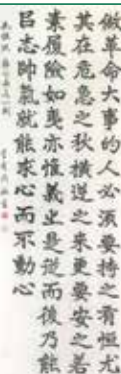 做革命大事的人必須要持之有恒尤
其在危急之秋橫逆之來更要安之若
素履險如夷亦惟義之是從而後乃能
以志帥氣就能求心而不動心